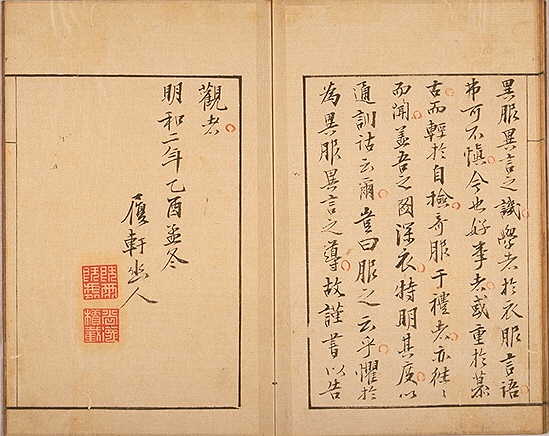 異服異言之譏學者於衣服言語
可不慎今也好事者或重於慕
古而輕於自撿奇服于禮者亦往〻
而聞盖吾之圖深衣特明其度以
通訓詁云爾豈曰服之云乎懼於
為異服異言之導故謹書以告
觀者
明和二年乙酉孟冬
履軒幽人